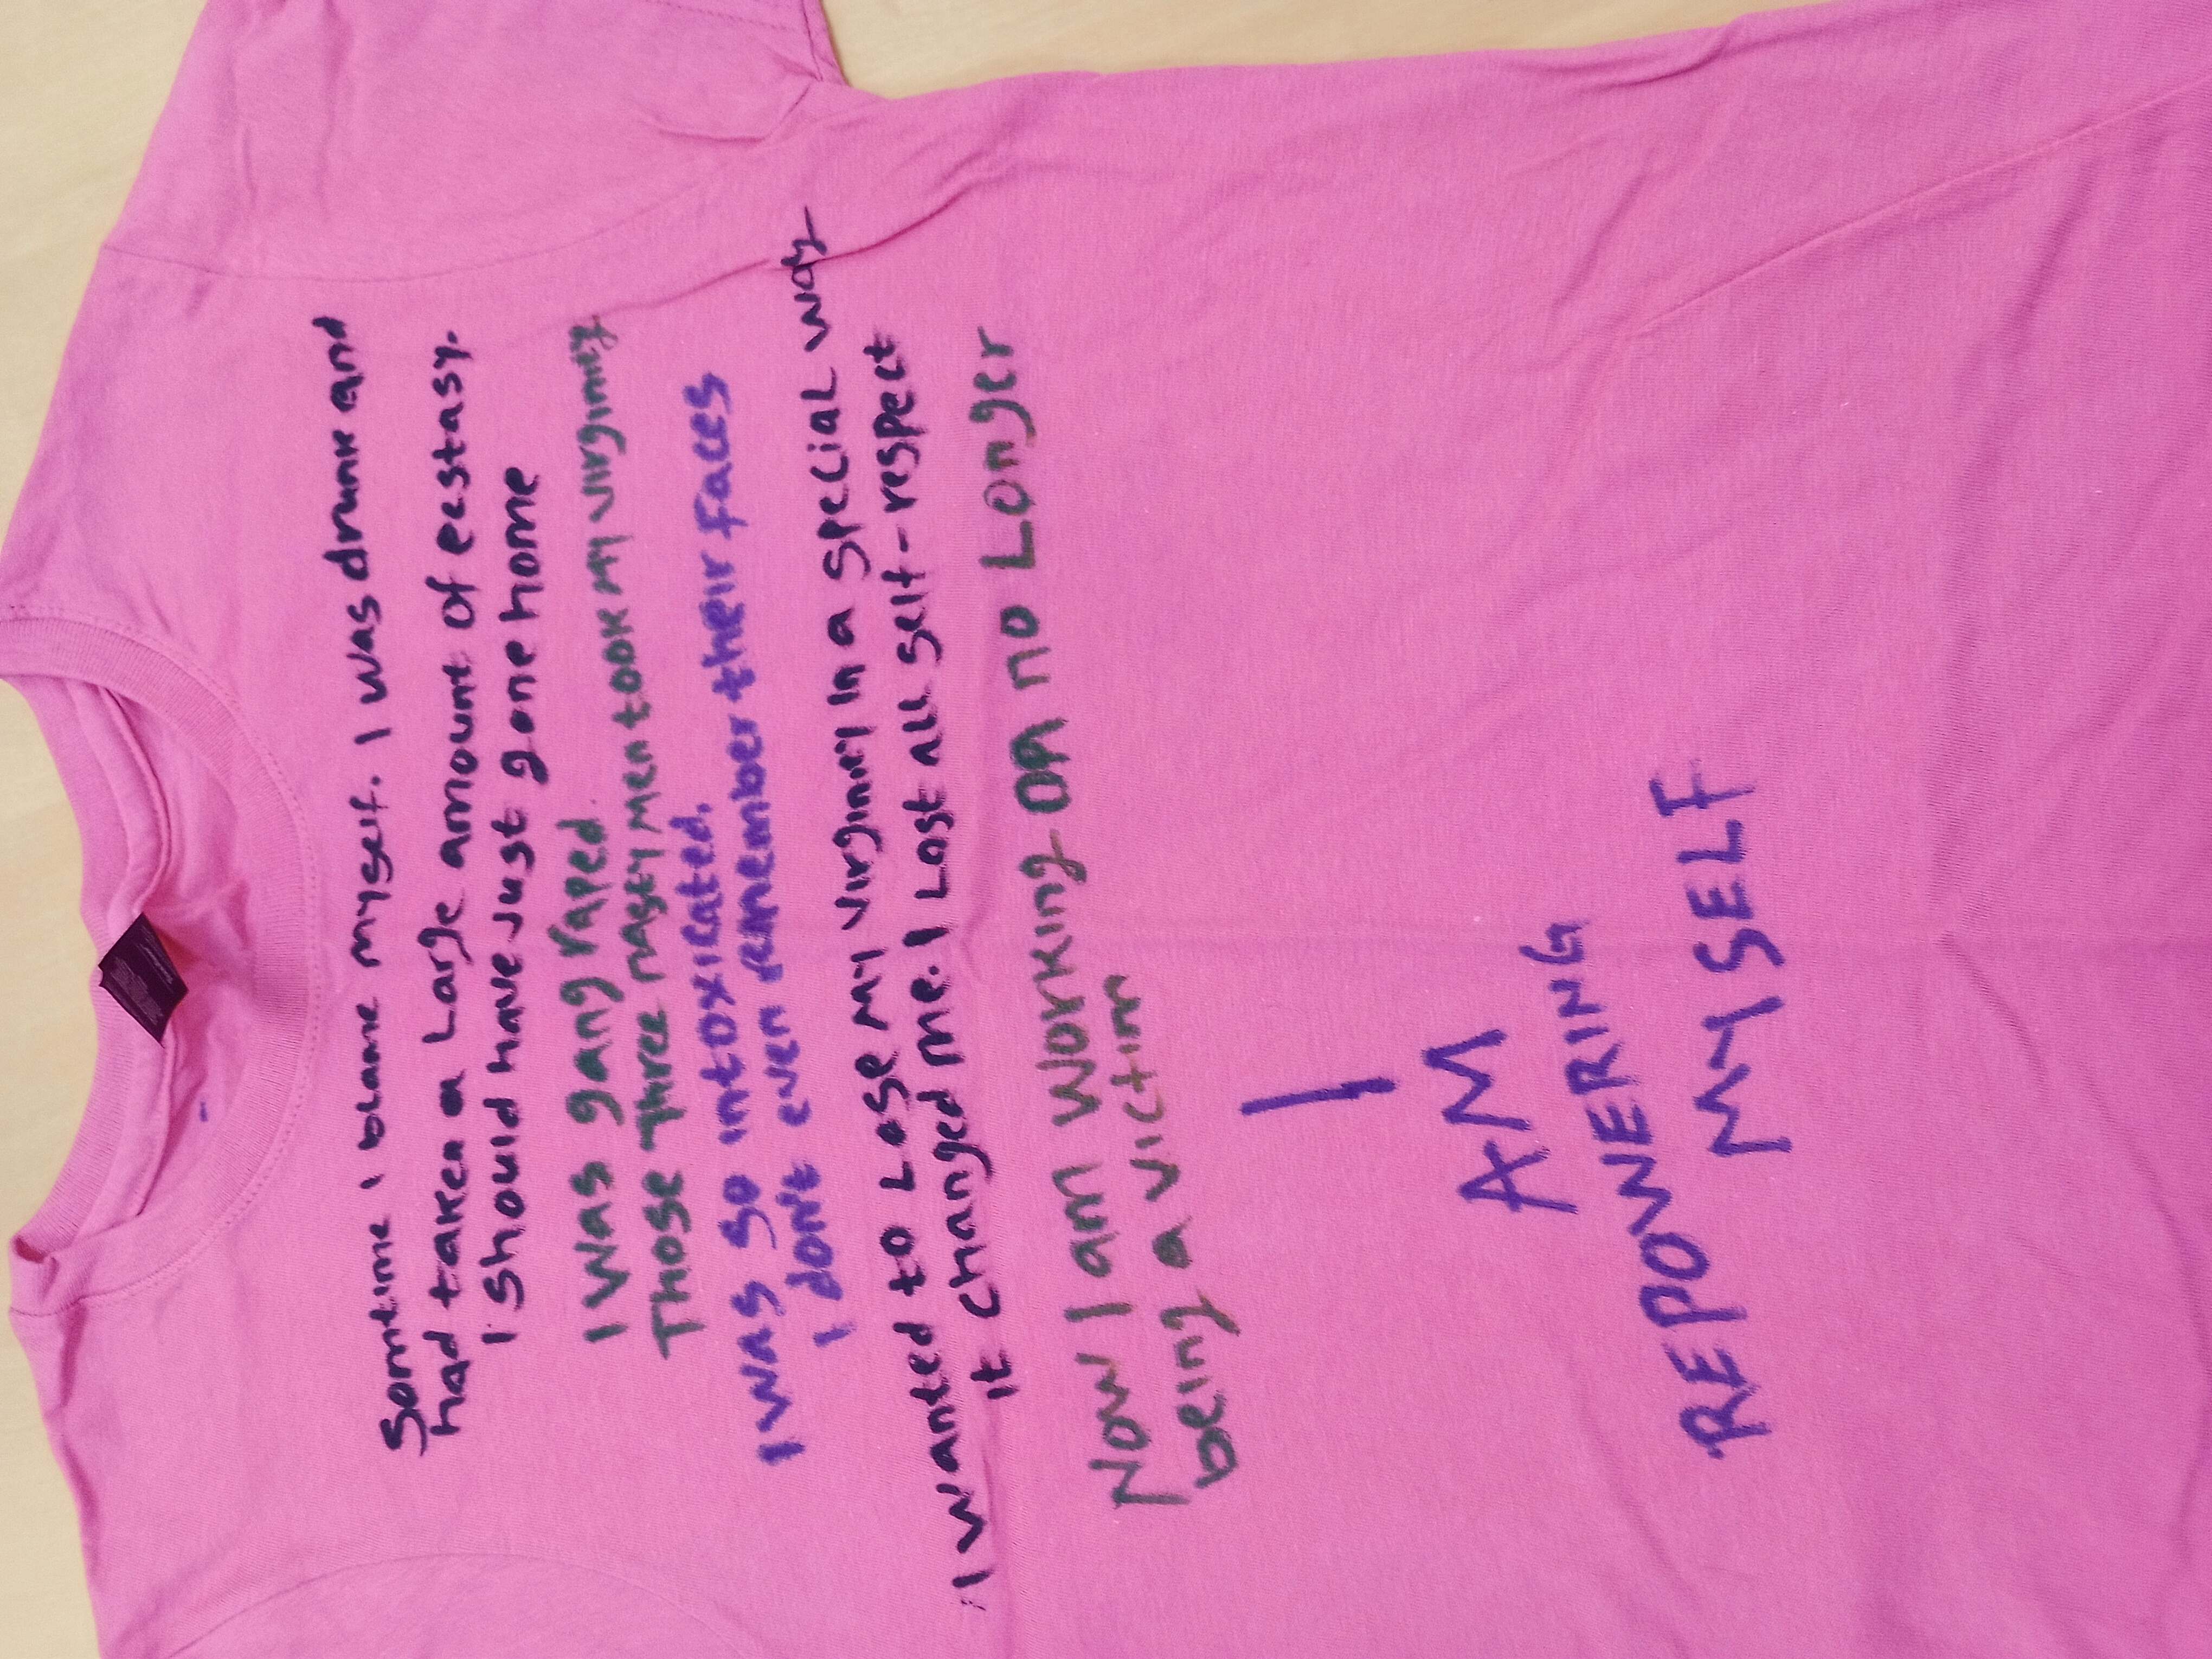 Somtime I blame myself. I was drunk and
had taken a Large amount of ecstasy.
I should have just gone home
I was gang raped.
Those Three nasty men took my virginity
I was so intoxicated.
I don't even remember their faces
I wanted to Lose my virginity in a special way
it changed me. I Lost all self-respect
Now I am working on no Longer
being a victim
I
AM
REPOWERING
MYSELF